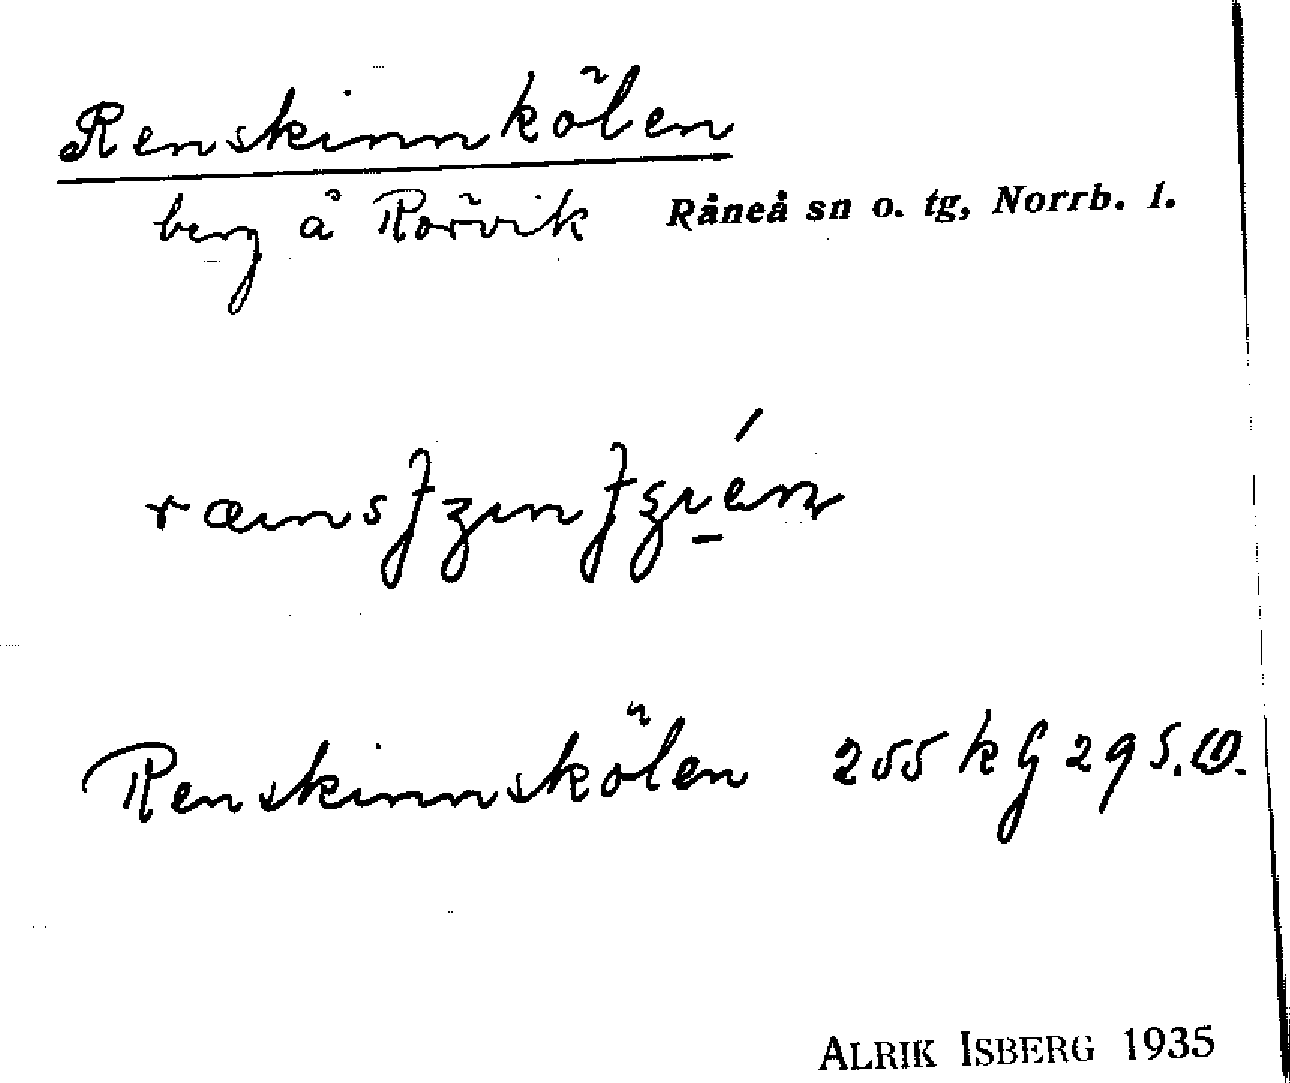 Renskinnkölen
berg å Rörvik Råneå sn o. tg, Norrb. l.
Renskinnskölen 255 k G 29 S.O.
ALRIK ISBERG 1935